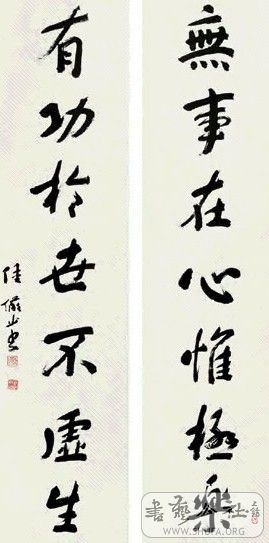 無事在心惟極樂
有功於世不虛生
陸儼少書
書藝公社
WWW.SHUFA.ORG